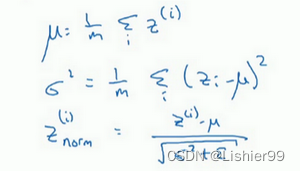 μ: 1/m Σ_i z^(i)
σ² = 1/m Σ_i (z_i - μ)²
z_norm^(i) = (z^(i) - μ) / √(σ² + ε)
CSDN @Lishier99